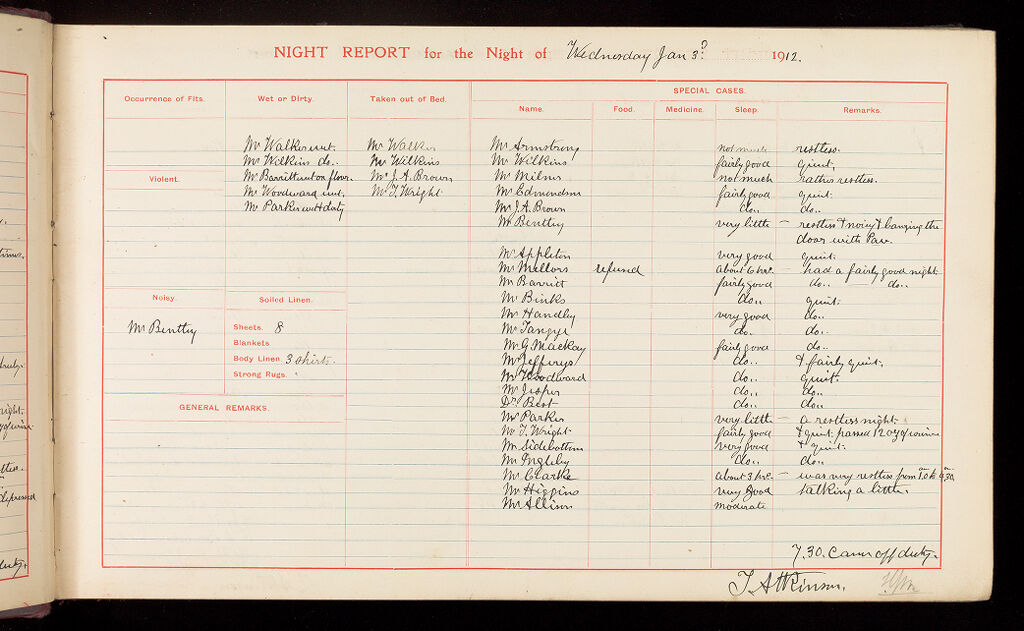 NIGHT REPORT for the Night of Wednesday Jan 3rd 1912.
Occurrence of Fits.
Wet or Dirty.
Taken out of Bed.
SPECIAL CASES.
Name.
Food.
Medicine.
Sleep.
Remarks.
Mr Walker wet.
Mr Wilkins do..
Mr Barritt wet on floor.
Mr Woodward wet.
Mr Parker wet & dirty
Mr Walker
Mr Wilkins
Mr J. A. Brown
Mr T. Wright
Violent.
Noisy.
Mr Benttey
Soiled Linen.
Sheets. 8
Blankets
Body Linen 3 shirts.
Strong Rugs. "
GENERAL REMARKS.
Mr Armstrong not much restless.
Mr Wilkins fairly good quiet.
Mr Milnes not much rather restless.
Mr Edmondson fairly good quiet.
Mr J. A. Brown do.. do..
Mr Benttey very little – restless & noisy & banging the
door with
Mr Appleton very good quiet.
Mr Mellors refused about 6 hrs. – had a fairly good night.
Mr Barritt fairly good do.. – do..
Mr Binks do.. quiet.
Mr Handley very good do..
Mr Tangye do.. do..
Mr G. Mackay fairly good do..
Mr Jefferys do.. & fairly quiet.
Mr Woodward do.. quiet.
Mr Jesper do.. do..
Dr Best do.. do..
Mr Parker very little – a restless night.
Mr T. Wright fairly good & quiet. passed 12 ozs of urine
Mr Sidebottom very good & quiet.
Mr Ingleby do.. do..
Mr Clarke about 3 hrs. – was very restless from
Mr Higgins very good talking a little.
Mr Allison moderate
7.30. Came off duty.
T. Atkinson.